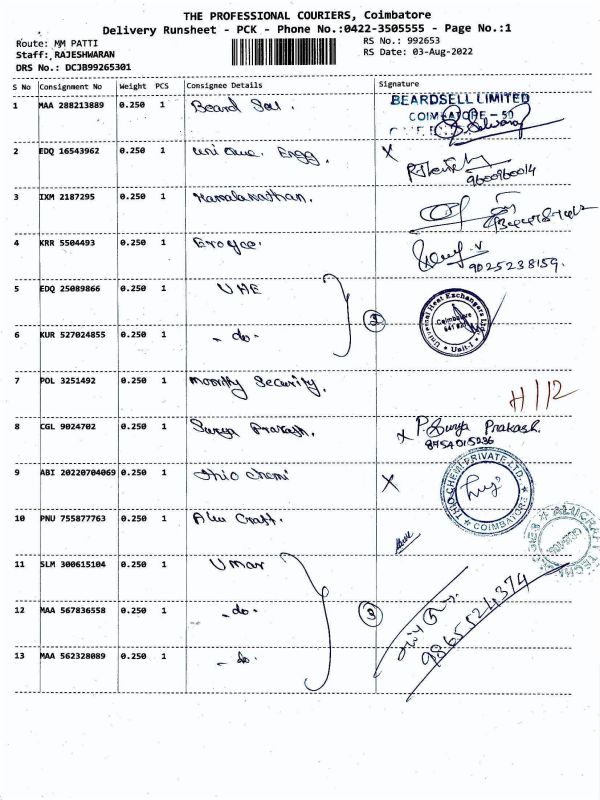 THE PROFESSIONAL COURIERS, Coimbatore
Delivery Runsheet - PCK - Phone No.:0422-3505555 - Page No.:1
Route: MM PATTI
RS No.: 992653
Staff: RAJESHWARAN
RS Date: 03-Aug-2022
DRS No.: DCJB99265301
S No Consignment No Weight PCS Consignee Details Signature
1 MAA 288213889 0.250 1 Beard Sel. BEARDSELL LIMITED
COIMBATORE - 50
2 EDQ 16543962 0.250 1 Uni Engg. X
9600960014
3 IXM 2187295 0.250 1 Kamalanathan.
4 KRR 5504493 0.250 1
9025238159.
5 EDQ 25089866 0.250 1 UHE 2 Universal Heat Exchangers Ltd. Coimbatore Unit-I
6 KUR 527024855 0.250 1 - do -
7 POL 3251492 0.250 1 Moorthy Security. H112
8 CGL 9024702 0.250 1 Surya Prakash. x P. Surya Prakash.
8754015236
9 ABI 20220704069 0.250 1 Thio Chemi X THIO CHEM PRIVATE LTD. COIMBATORE
10 PNU 755877763 0.250 1 Alu Craft. ALUCRAFT
11 SLM 300615104 0.250 1 Umax
12 MAA 567836558 0.250 1 - do - 3
9865524374
13 MAA 562328089 0.250 1 - do -